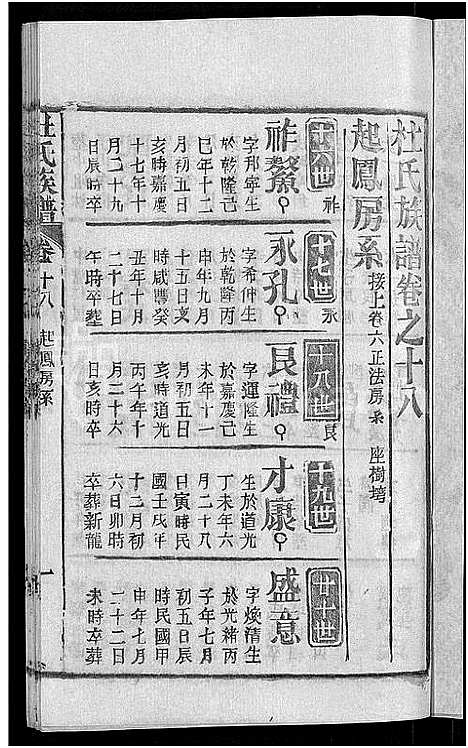 杜氏族譜卷之十八
起鳳房系 接上卷六正法房系 座樹塆
十六世 祚
祚鰲
字邦寧生
於乾隆己
巳年十二
月初五日
亥時嘉慶
十七年十
月二十九
日辰時卒
十七世 永
永孔
字希仲生
於乾隆丙
申年九月
十五日戌
時咸豐癸
丑年十月
二十七日
午時卒塟
十八世 良
良禮
字運隆生
於嘉慶己
未年十一
月初五日
亥時道光
丙午年十
月二十六
日亥時卒
十九世
才康
生於道光
丁未年六
月二十八
日寅時民
國壬戌年
十二月初
六日卯時
卒葬新龍
廿十世
盛意
字煥清生
於光緒丙
子年七月
初五日辰
時民國甲
申年七月
一十二日
未時卒葬
杜氏族譜 卷十八 起鳳房系 一